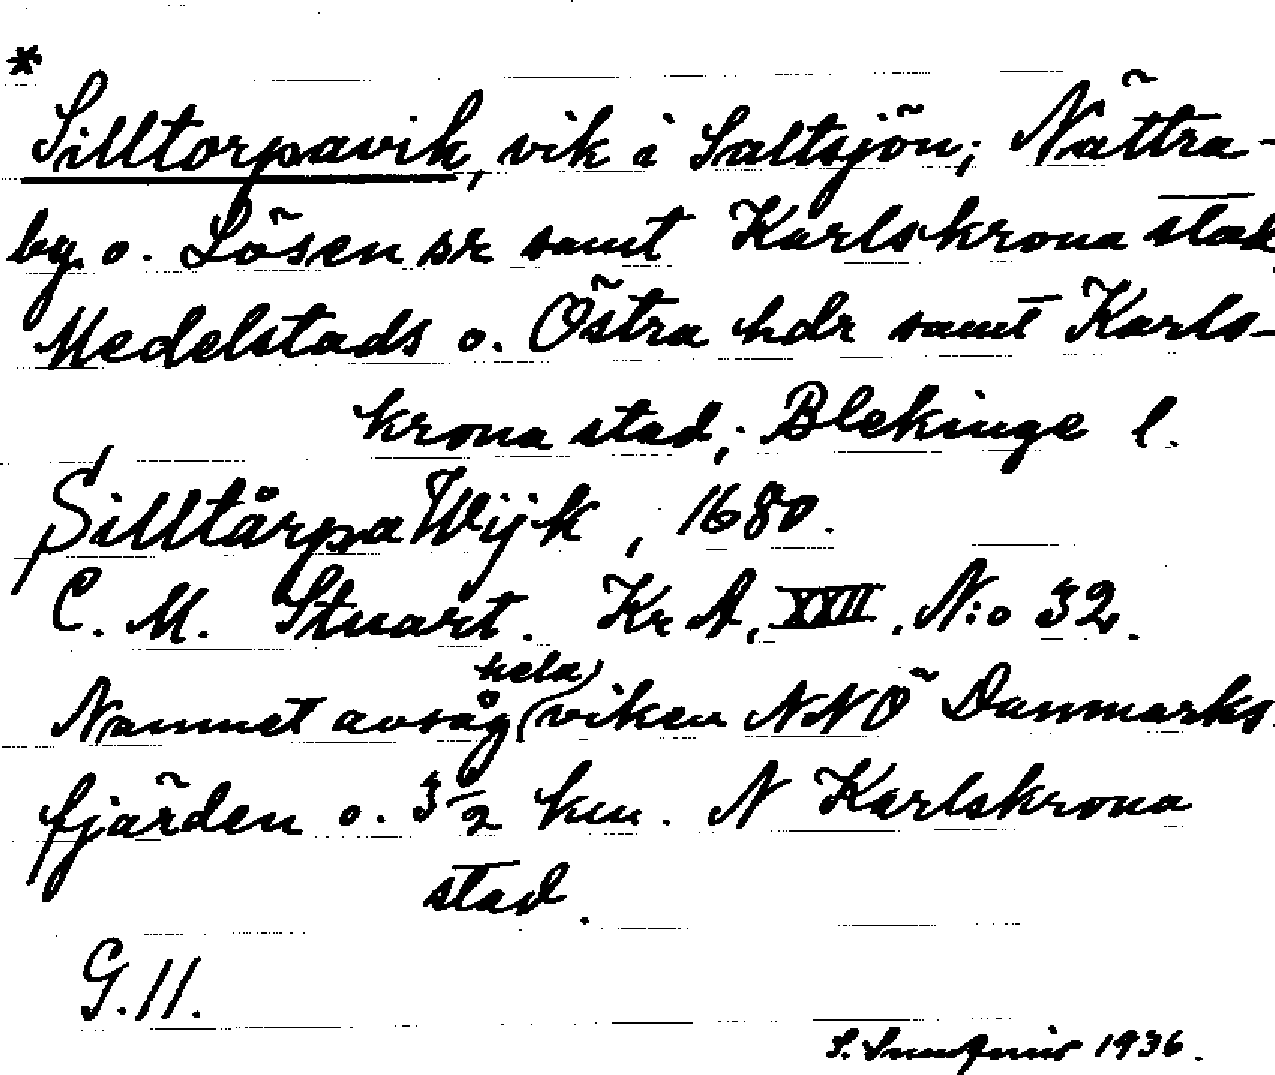 *
Silltorpavik, vik i Saltsjön; Nättra-
by o. Lösen sr samt Karlskrona stad
Medelstads o. Östra hdr samt Karls-
krona stad; Blekinge l.
Silltårpa Wijk, 1680.
C. M. Stuart. Kr A, XXII. N:o 32.
hela
Namnet avsåg viken NNÖ Danmarks-
fjärden o. 3 1/2 km. N Karlskrona
stad.
G. 11.
S. 1936.